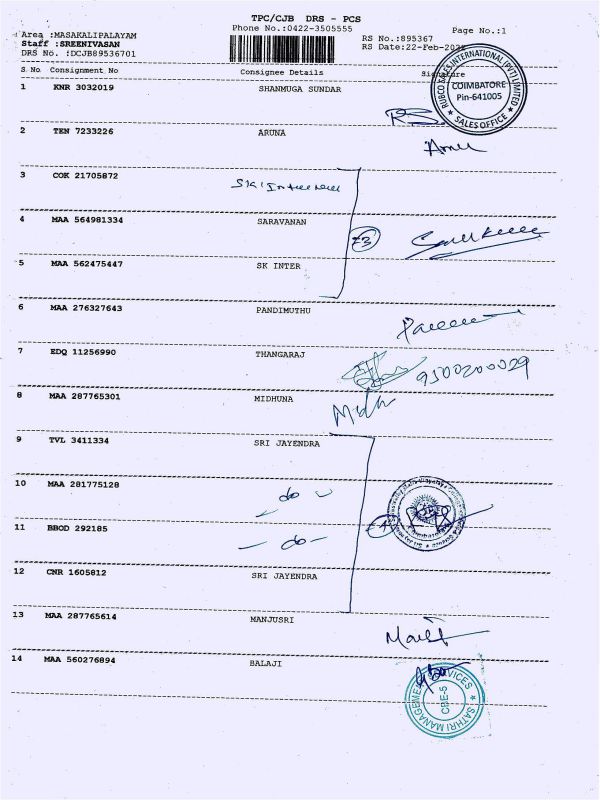 TPC/CJB DRS - PCS
Phone No.:0422-3505555
Page No.:1
Area :MASAKALIPALAYAM
Staff :SREENIVASAN
DRS No. :DCJB89536701
RS No.:895367
RS Date:22-Feb-202
S.No Consignment No Consignee Details Signature
1 KNR 3032019 SHANMUGA SUNDAR
RUBCO SALES INTERNATIONAL (PVT) LIMITED
COIMBATORE
Pin-641005
SALES OFFICE
2 TEN 7233226 ARUNA
3 COK 21705872
4 MAA 564981334 SARAVANAN
5 MAA 562475447 SK INTER
6 MAA 276327643 PANDIMUTHU
7 EDQ 11256990 THANGARAJ
9500200029
8 MAA 287765301 MIDHUNA
9 TVL 3411334 SRI JAYENDRA
10 MAA 281775128 do
11 BBOD 292185 - do -
12 CNR 1605812 SRI JAYENDRA
13 MAA 287765614 MANJUSRI
14 MAA 560276894 BALAJI
SATHRI MANAGEMENT SERVICES
CBE-5